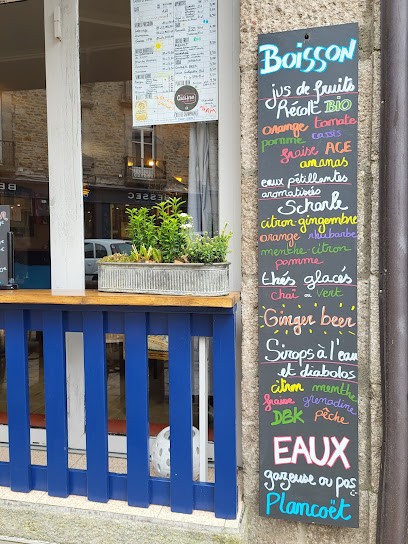 Boisson
jus de fruits
Récolt BIO
orange tomate
pomme cassis
fraise ACE
ananas
eaux pétillantes
aromatisées
Schark
citron-gingembre
orange rhubarbe
menthe-citron
pomme
thés glacés
chaï ou vert
Ginger beer
Sirops à l'eau
et diabolos
citron menthe
fraise grenadine
DBK pêche
EAUX
gazeuse ou pas
Plancoët